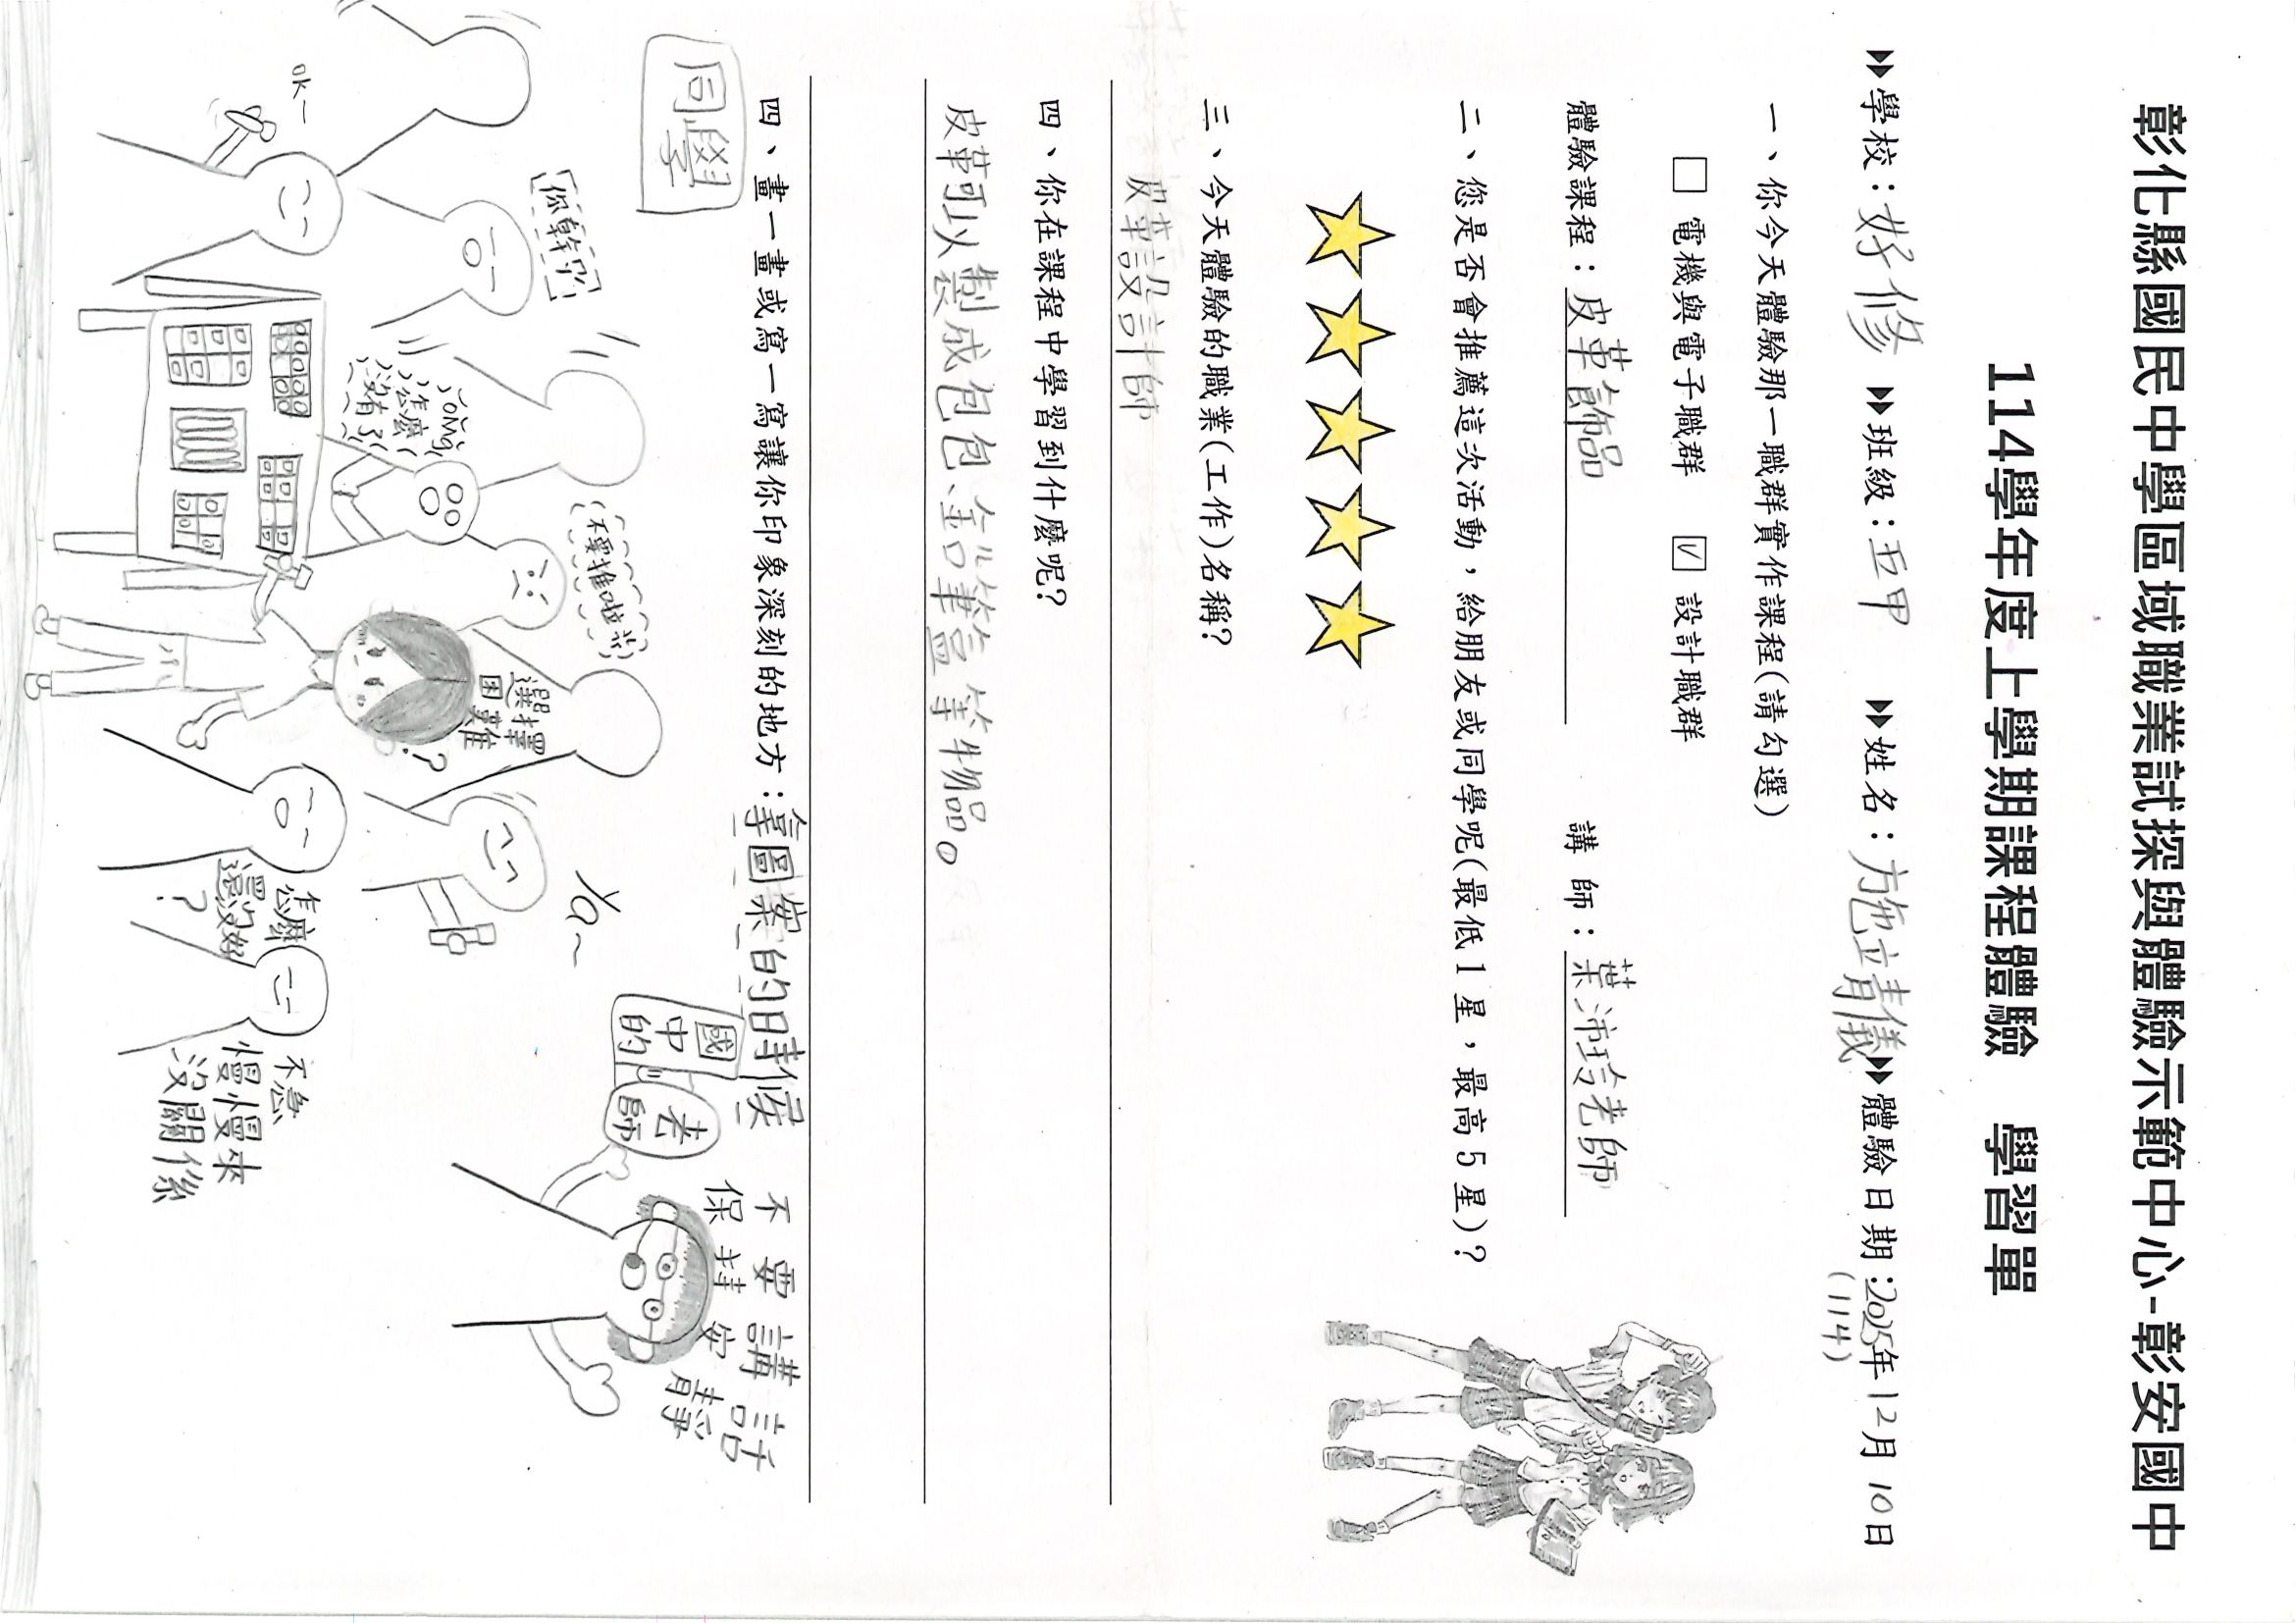 彰化縣國民中學區域職業試探與體驗示範中心-彰安國中
114學年度上學期課程體驗 學習單
學校：好修 班級：五甲 姓名：施靖儀 體驗日期：2025年12月10日
(114)
一、你今天體驗那一職群實作課程(請勾選)
□ 電機與電子職群 ☑ 設計職群
體驗課程：皮革飾品 講 師：葉沛玹老師
二、您是否會推薦這次活動，給朋友或同學呢(最低1星，最高5星)？
三、今天體驗的職業(工作)名稱？
皮革設計師
四、你在課程中學習到什麼呢？
皮革可以製成包包、鉛筆盒等物品。
四、畫一畫或寫一寫讓你印象深刻的地方：拿圖案的時候
同學
國中的
老師
不要講話
保持安靜
你幹嘛
不要推啦
Ya~
OMG
怎麼
沒有了
選擇
困難
?
ok
怎麼
還沒好
?
不急
慢慢來
沒關係